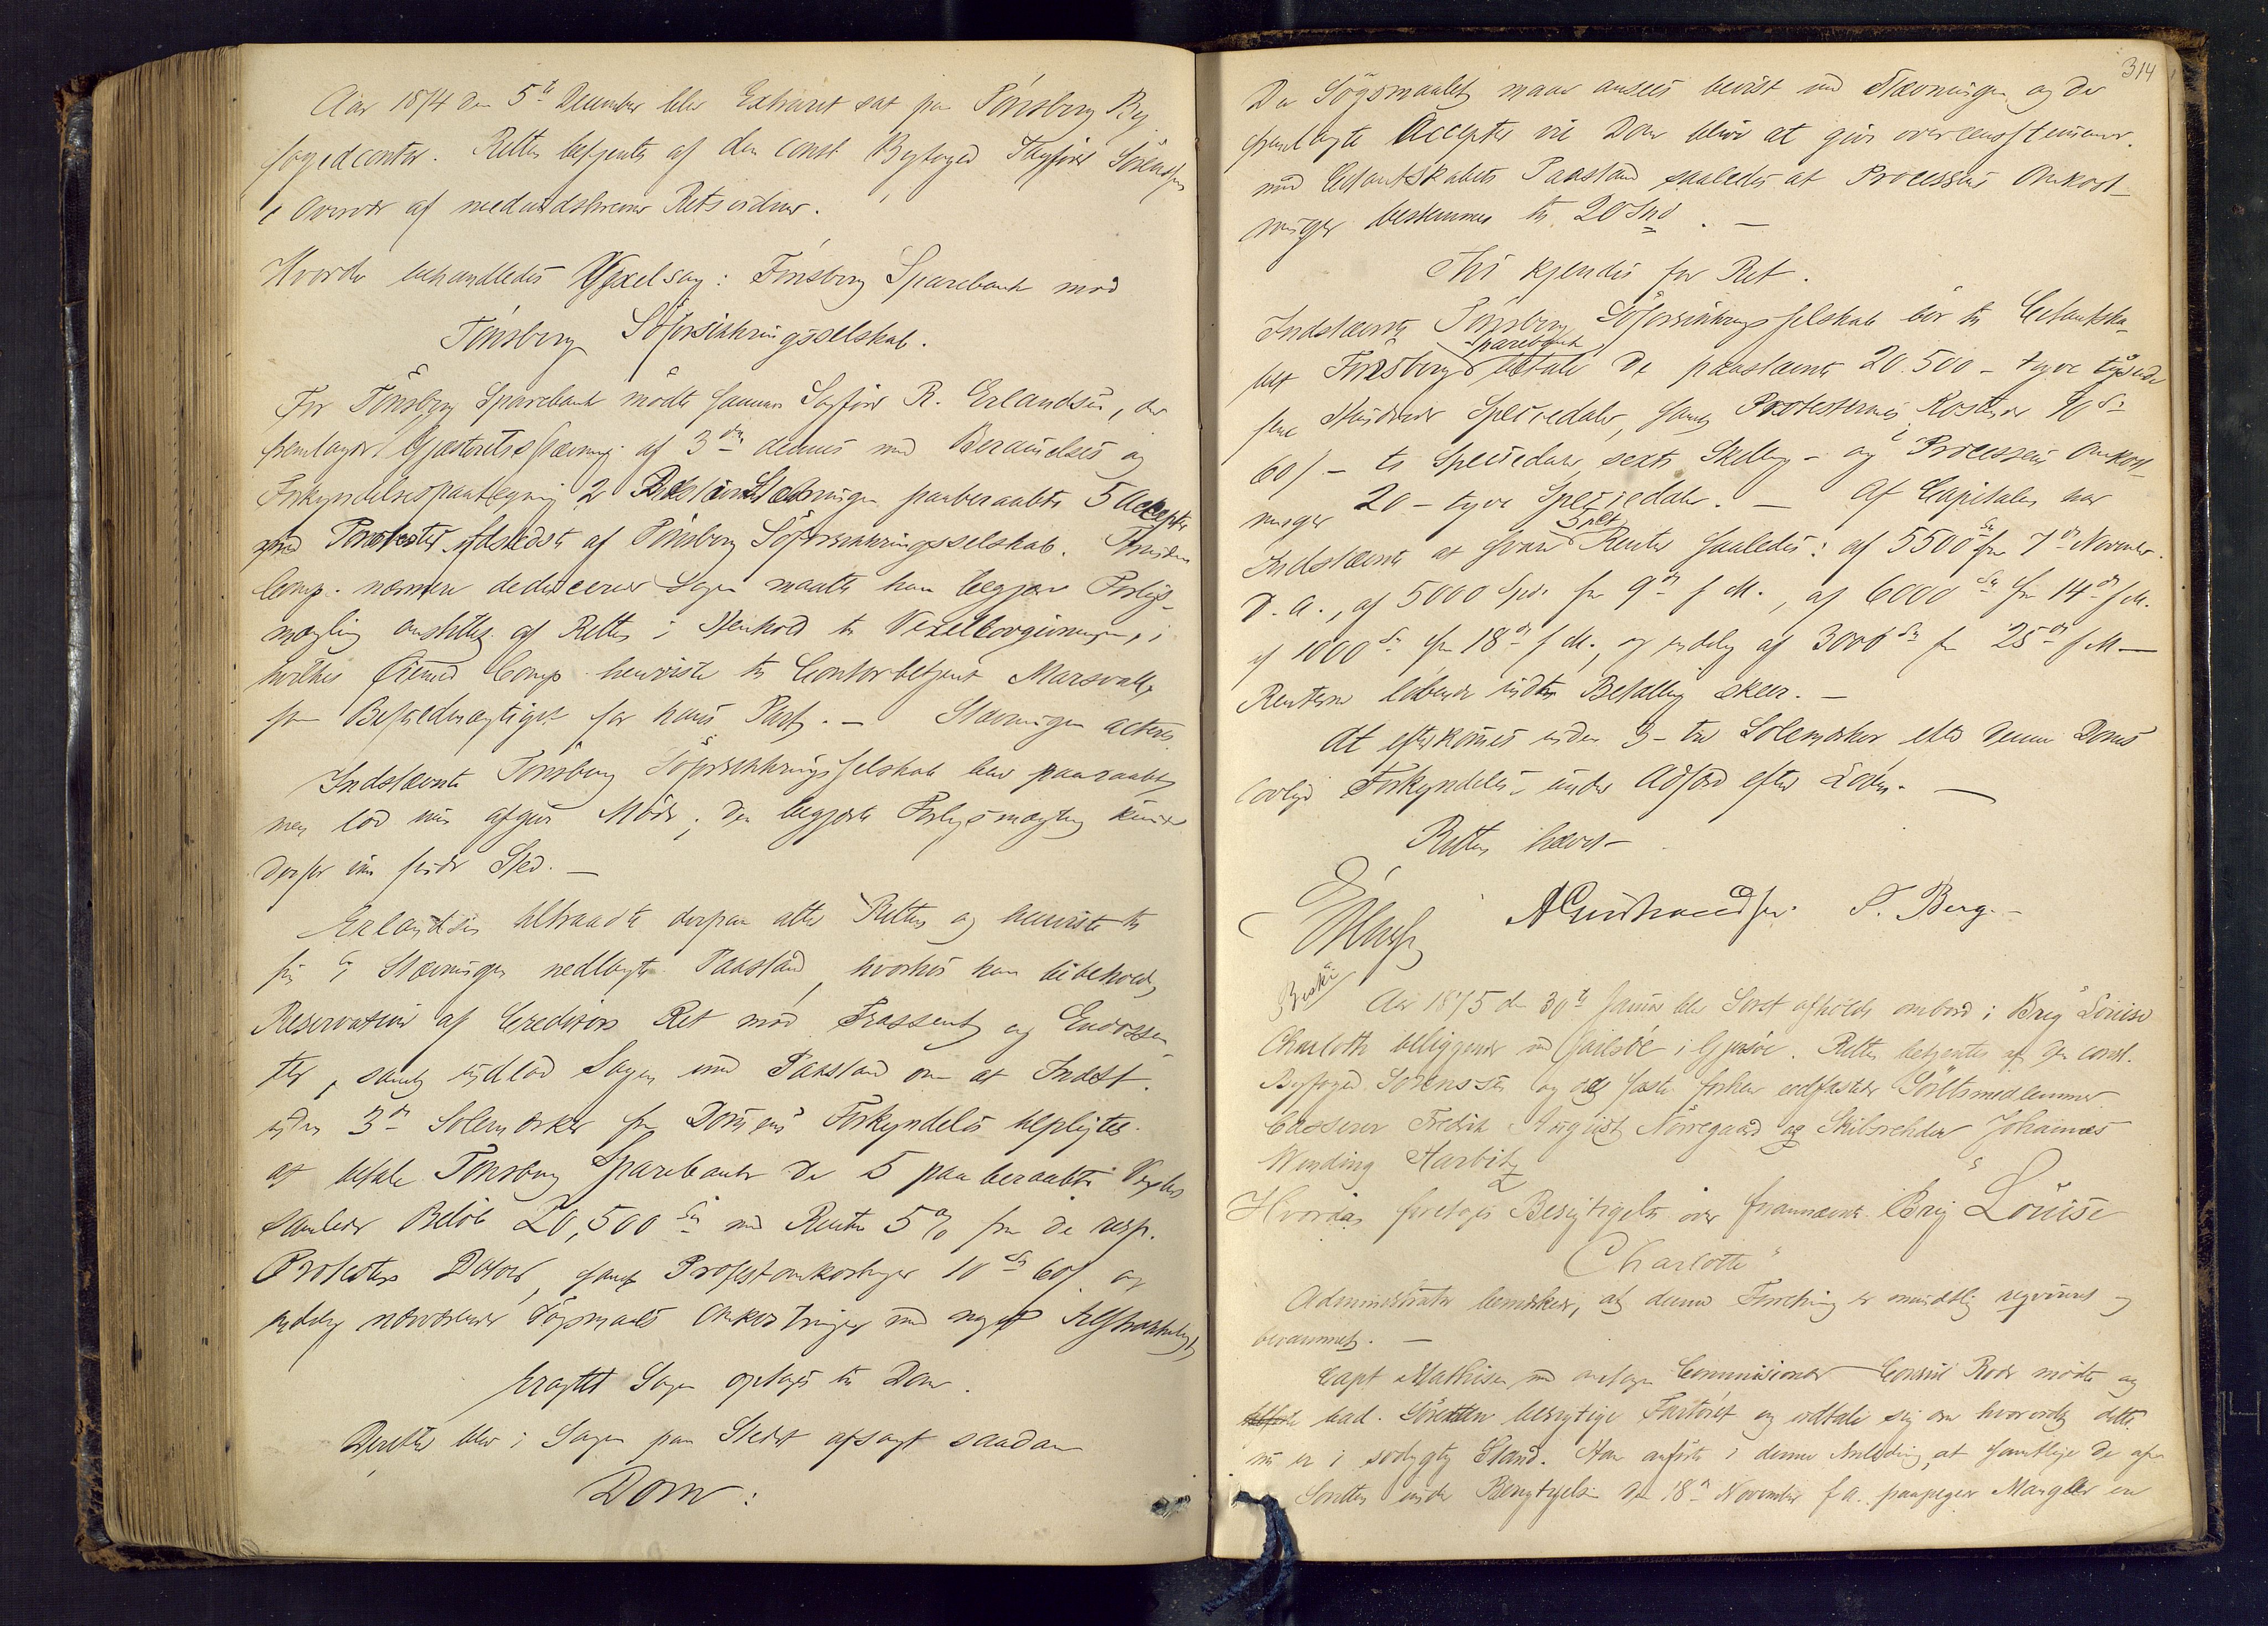 Aar 1874 den 5te December blev Extraret sat paa Tönsberg By
fogedcontor. Retten betjentes af den const Byfoged Sörensen
i Overvær af medundskrevne Retsvidner.
Hvorda behandledes Vexelsag: Tönsberg Sparebank mod
Tönsberg Söforsikkringsselskab.
For Tönsberg Sparebank mödte Sagförer R. Erlandsen, der
fremlagde Gjæsteretsstævning af 3die dennes med Berammelse og
Forkyndelsespaategning 2 Stævningen paaberaabte 5 Accepter
med Protester udstedte af Tönsberg Söforsikkringsselskab. Forinden
Comp. nærmere deducerer Sagen maatte han begjære Forligs-
mægling anstillet af Retten i Henhold til Vexellovgivningen, i
hvilket Öiemed Comp henviste til Contorbetjent
som Befuldmægtiget for hans Part. — Stævningen acteres
Indstævnte Tönsberg Söforsikkringsselskab blev paaraabt
men lod ikke afgive Möde; den begjærte Forligsmægling kunde
derfor ikke finde Sted. —
Erlandsen tiltraadte derpaa atter Retten og henviste til
sin i Stævningen nedlagte Paastand, hvorhos han bibeholdt
Reservation af Creditors Ret mod Trassent og Endossen-
ter, samt indlod Sagen med Paastand om at Indst.
inden 3de Solemærker fra Dommens Forkyndelse tilpligtes
at betale Tönsberg Sparebank de 5 paaberaabte Vexlers
samlede Belöb 20,500 Spd med Renter 5% fra de resp.
Protesters Datoer, samt Protestomkostninger 10 Spd 60 s og
endelig nærværende Sögsmaals Omkostninger med noget Tilstrækkeligt
Eragtet Sagen optages til Dom.
Derefter blev i Sagen paa Stedet afsagt saadan
Dom:
314
Da Sögsmaalet maa ansees bevist med Stævningen og de
fremlagte Accepter vil Dom blive at give overensstemmende
med Citantskabets Paastand saaledes at Processens Omkost-
ninger bestemmes til 20 Spd. —
Thi kjendes for Ret.
Indstævnte Tönsberg Söforsikringsselskab bör til Citantska-
bet Tönsberg Sparebank betale de paastævnte 20.500 – tyve tusinde
fem Hundrede Speciedaler, samt Protesternes Kostende 10 Sp
60 s – ti Speciedaler sexti Skilling – og i Processens Omkost-
ninger 20 – tyve Speciedaler. — Af Capitalen har
Indstævnte at svare 5 pCt Renter saaledes: af 5500 Sp fra 7de November
d. A., af 5000 Spd. fra 9de s. M., af 6000 Sp fra 14de s. M.
af 1000 Sp fra 18de s. M., og endelig af 3000 Sp fra 25de s. M —
Renterne löbende indtil Betaling skeer. —
At efterkommes inden 3 – tre Solemærker efter denne Doms
lovlige Forkyndelse under Adfærd efter Loven. —
Retten hævet —
S. Berg. —
Aar 1875 den 30te Januar blev Soret afholdt ombord i Brig "Louise
Charlotte beliggende ved i . Retten betjentes af den const.
Byfoged Sörenssen og de faste forhen edfæstede Söretsmedlemmer
Casserer Fredrik August Nörregaard og Skibsrheder Johannes
Wending Harbitz
Hvorda foretoges Besigtigelse over fornævnte Brig "Louise
Charlotte"
Administrator bemærkede, at denne Forretning er mundtlig reqvireret og
berammet. —
Capt Mathisen med antagen Commissionær Consul Rode mödte og
bad Söretten besigtige Fartöiet og udtale sig om hvorvidt dette
nu er i södygtig Stand. Han anförte i denne Anledning, at samtlige de af
Söretten under Besigtigelsen den 18de November f. A. paapegede Mangler ere